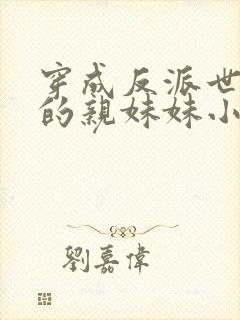 穿成反派世
的親妹妹小
劉嘉偉